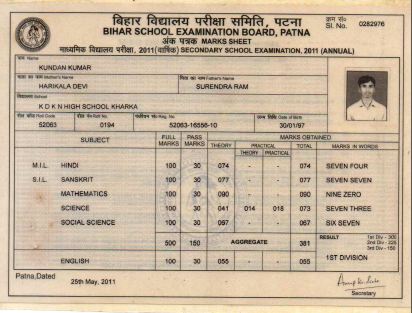 बिहार विद्यालय परीक्षा समिति, पटना
क्रम सं०
BIHAR SCHOOL EXAMINATION BOARD, PATNA
Sl. No. 0282976
अंक पत्रक MARKS SHEET
माध्यमिक विद्यालय परीक्षा, 2011 (वार्षिक) SECONDARY SCHOOL EXAMINATION, 2011 (ANNUAL)
नाम Name
KUNDAN KUMAR
माता का नाम Mother's Name पिता का नाम Father's Name
HARIKALA DEVI SURENDRA RAM
विद्यालय School
K D K N HIGH SCHOOL KHARKA
रौल कोड Roll Code रौल नं० Roll No. पंजीयन सं० Reg. No. जन्म तिथि Date of Birth
52063 0194 52063-16556-10 30/01/97
SUBJECT FULL MARKS PASS MARKS MARKS OBTAINED
THEORY PRACTICAL TOTAL MARKS IN WORDS
THEORY PRACTICAL
M.I.L. HINDI 100 30 074 - - 074 SEVEN FOUR
S.I.L. SANSKRIT 100 30 077 - - 077 SEVEN SEVEN
MATHEMATICS 100 30 090 - - 090 NINE ZERO
SCIENCE 100 30 041 014 018 073 SEVEN THREE
SOCIAL SCIENCE 100 30 067 - - 067 SIX SEVEN
500 150 AGGREGATE 381 RESULT 1st Div - 300
2nd Div - 225
3rd Div - 150
ENGLISH 100 30 055 - - 055 1ST DIVISION
Patna,Dated
25th May, 2011
Secretary